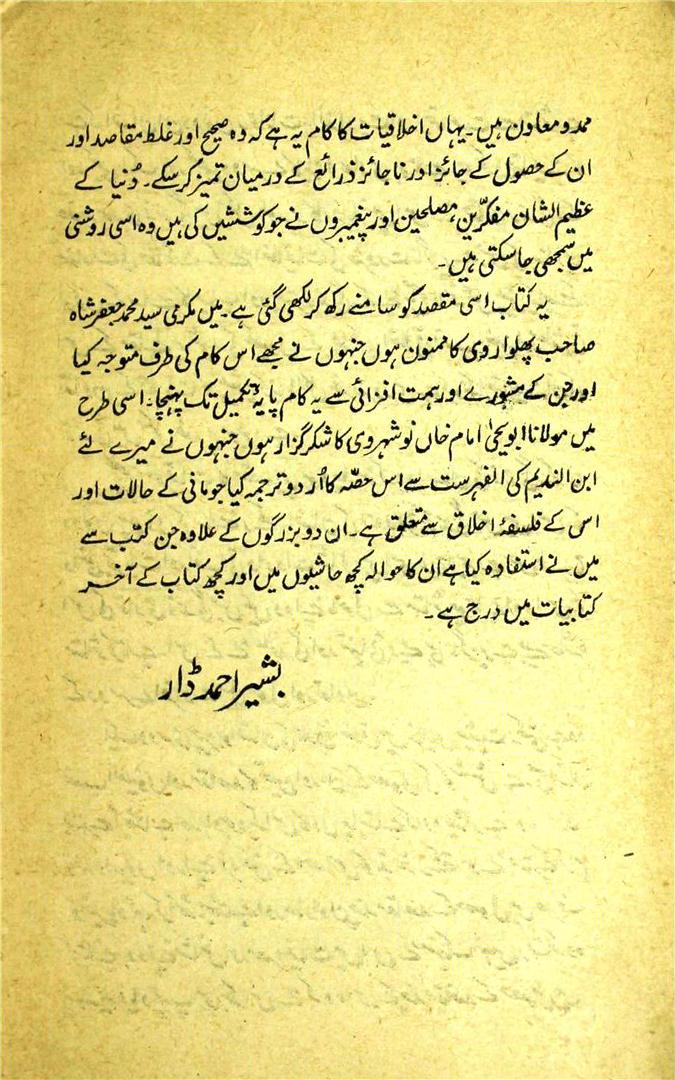 ممد و معاون ہیں۔ یہاں اخلاقیات کا کام یہ ہے کہ وہ صحیح اور غلط مقاصد اور
ان کے حصول کے جائز اور ناجائز ذرائع کے درمیان تمیز کر سکے۔ دُنیا کے
عظیم الشان مفکّرین، مصلحین اور پیغمبروں نے جو کوششیں کی ہیں وہ اسی روشنی
میں سمجھی جا سکتی ہیں۔
یہ کتاب اسی مقصد کو سامنے رکھ کر لکھی گئی ہے۔ میں مکرمی سید محمد جعفر شاہ
صاحب پھلواروی کا ممنون ہوں جنہوں نے مجھے اس کام کی طرف متوجہ کیا
اور جن کے مشورے اور ہمت افزائی سے یہ کام پایۂ تکمیل تک پہنچا۔ اسی طرح
میں مولانا ابو یحیٰ امام خاں نوشہروی کا شکر گزار ہوں جنہوں نے میرے لئے
ابن الندیم کی الفہرست سے اس حصّہ کا اُردو ترجمہ کیا جو مانی کے حالات اور
اس کے فلسفۂ اخلاق سے متعلق ہے۔ ان دو بزرگوں کے علاوہ جن کتب سے
میں نے استفادہ کیا ہے ان کا حوالہ کچھ حاشیوں میں اور کچھ کتاب کے آخر
کتابیات میں درج ہے۔
بشیر احمد ڈار